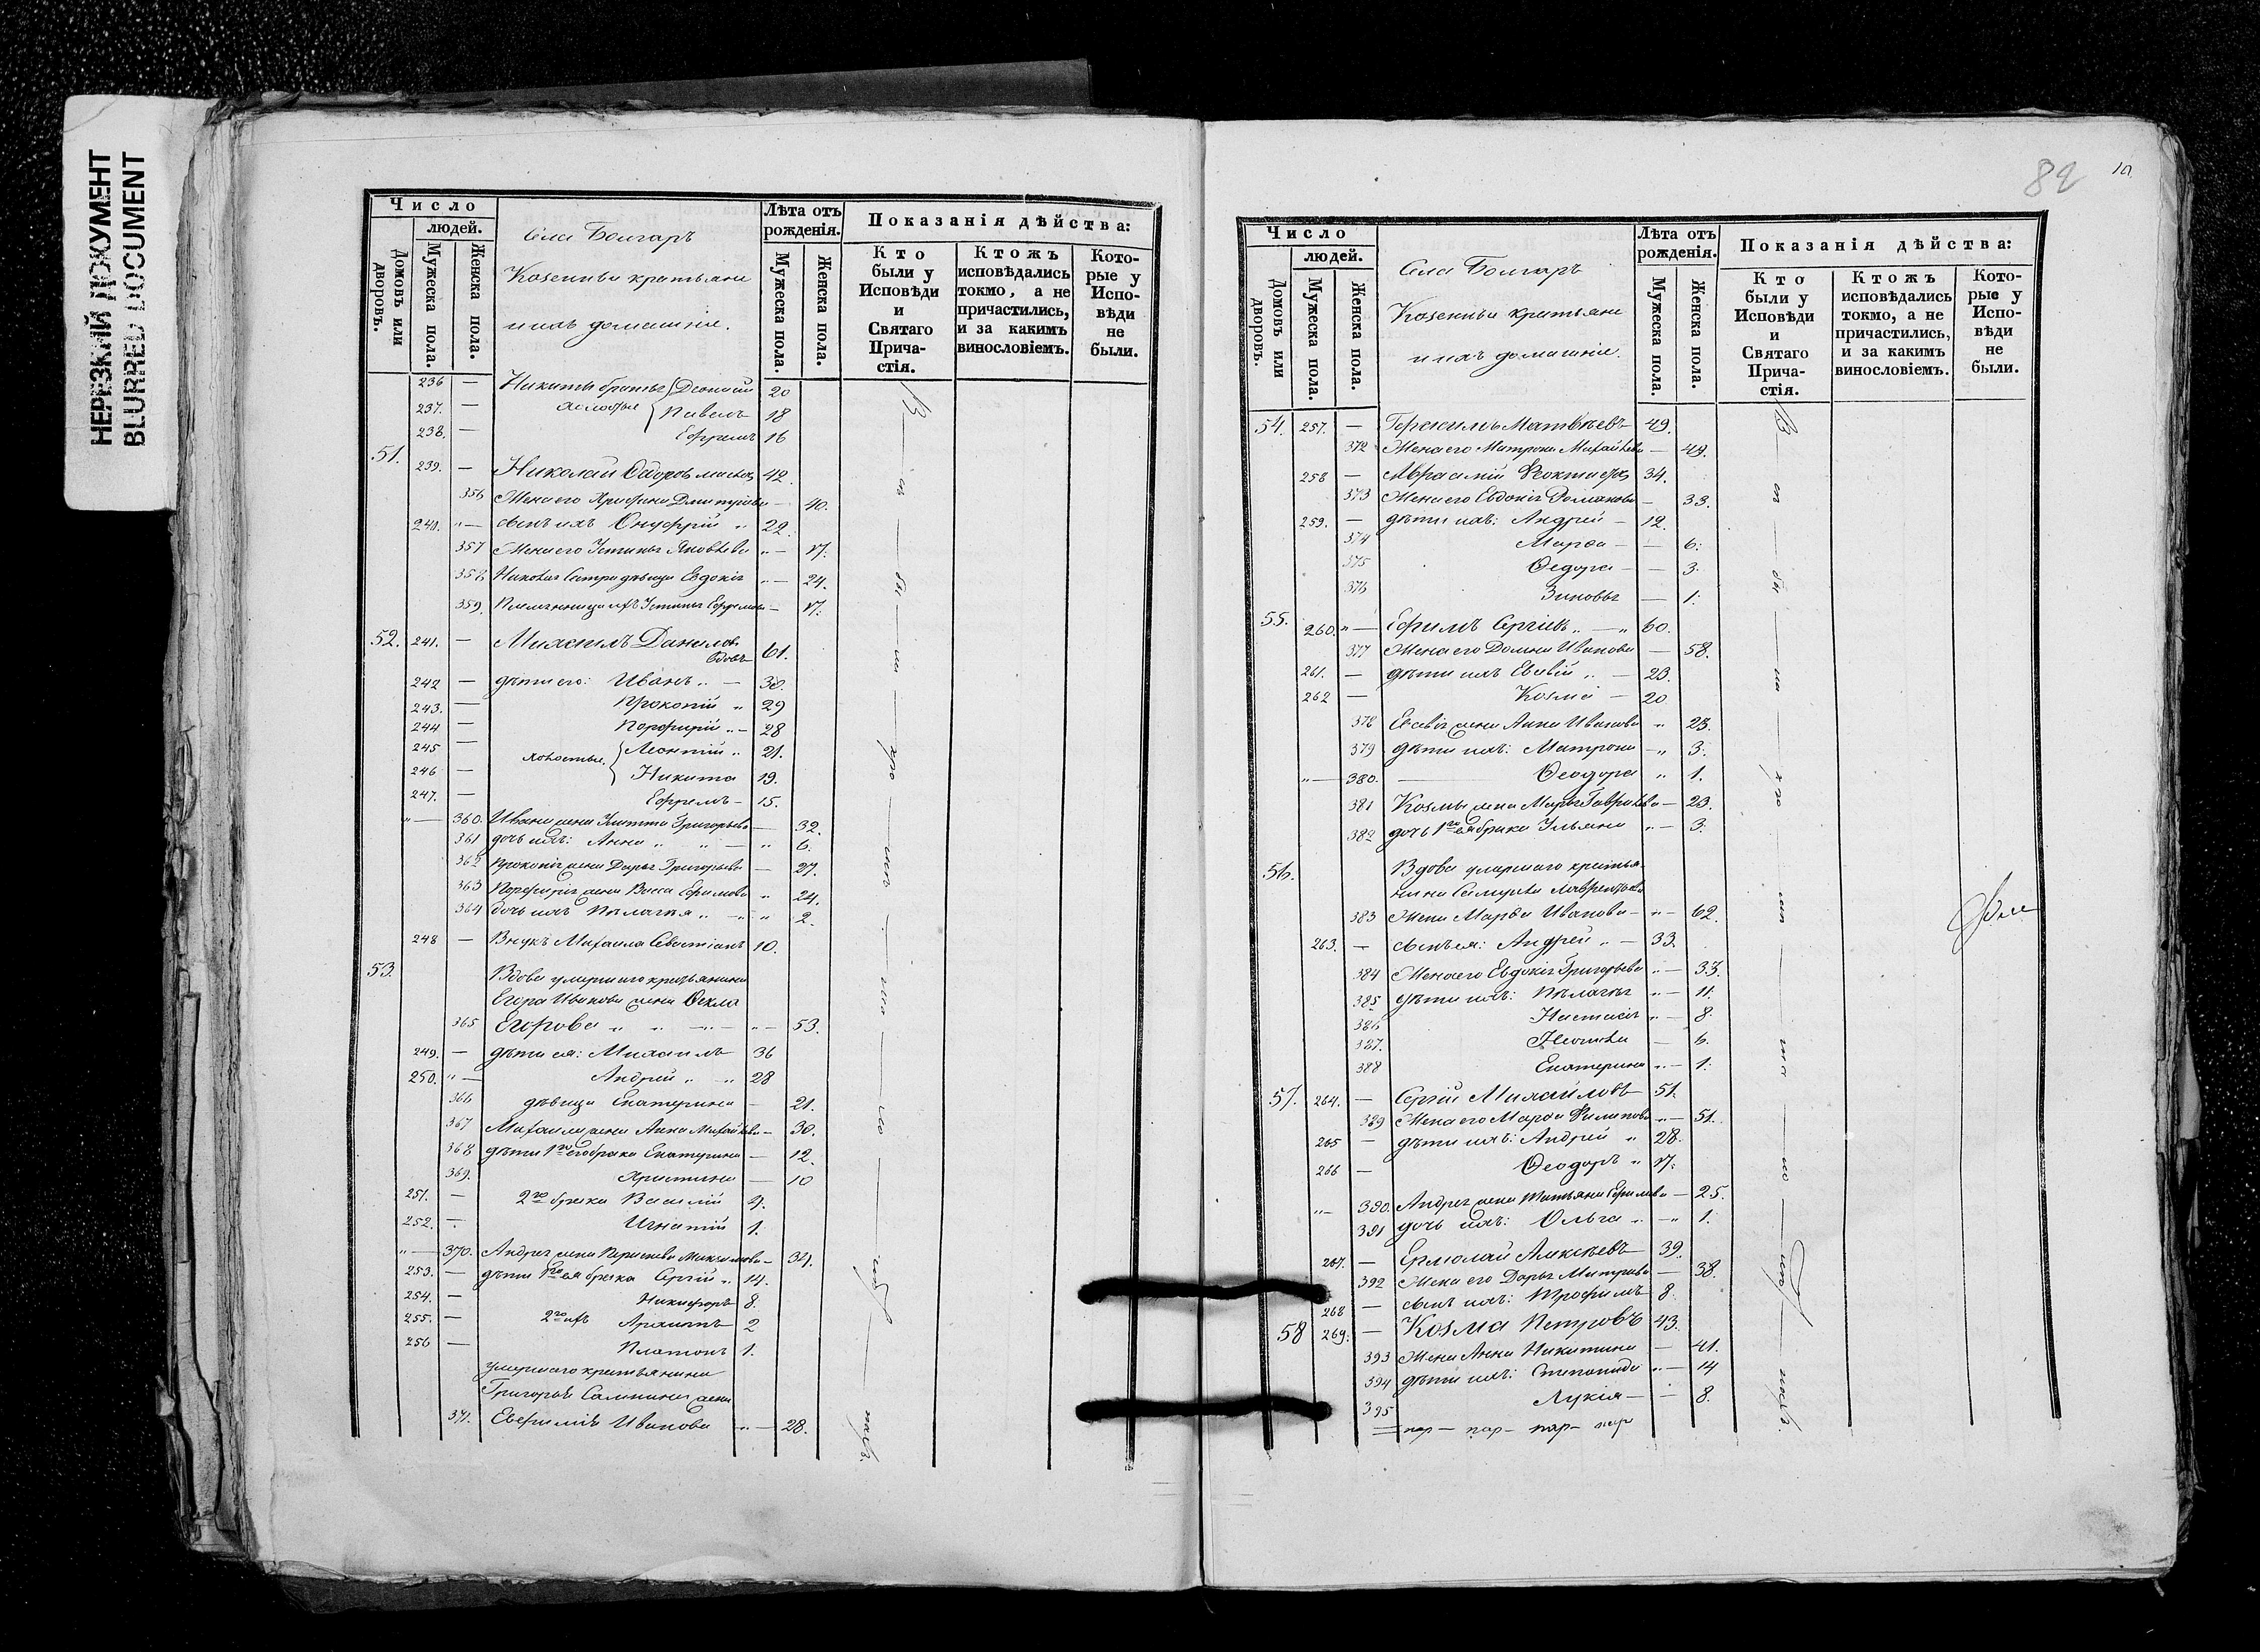 НЕРЕЗКИЙ ДОКУМЕНТ
BLURRED DOCUMENT
Число
людей.
Домовъ или дворовъ.
Мужеска пола.
Женска пола.
Села Болгаръ
Казенные крестьяне
и ихъ домашніе.
Лѣта отъ рожденія.
Мужеска пола.
Женска пола.
Показанія дѣйства:
Кто были у Исповѣди и Святаго Прича-стія.
Ктожъ исповѣдались токмо, а не причастились, и за какимъ винословіемъ.
Кото-рые у Испо-вѣди не были.
236 — Никиты братья 20
237. — холостые Павелъ 18
238. — Ефремъ 16
51. 239. — Николай Ѳедоровъ 42.
356 Жена его Дмитріева — 40.
240. — сынъ ихъ Онуфрій 22.
357 Жена его Устинья Яковлева — 17.
358 Николая сестра дѣвица Евдокія — 24.
359. Племянница ихъ Устинья Ефремова — 17.
52. 241. — Михаилъ Даниловъ
вдовъ 61.
242 — дѣти его: Иванъ — 30.
243. — Прокопій 29
244 — Порфирій — 28
245 — холостые Леонтій 21.
246 — Никита 19.
247. — Ефремъ — 15.
360. Ивана жена Григорьева — 32.
361 дочь ихъ: Анна 6.
362 Прокопія жена Дарья Григорьева — 27.
363 Порфирія жена Васса Ефимова 24.
364 дочь ихъ Пелагея 2.
248 — Внукъ Михаила Севастіанъ 10.
53. Вдова умершаго крестьянина
Егора Иванова жена Ѳекла
365 Егорова — 53.
249. — дѣти ея: Михаилъ 36
250. — Андрей 28
366 дѣвица Екатерина — 21.
367 Михаила жена Анна Михайлова — 30.
368 дѣти 1го его брака Екатерина — 12.
369. Христина — 10
251. — 2го брака Василій 4.
252. — Игнатій 1.
370. Андрея жена Параскева Максимова — 34.
253. — дѣти 1го ея брака Сергій 14.
254. — Никифоръ 8.
255. — 2го ихъ Архипъ 2
256 — Платонъ 1.
умершаго крестьянина
Григорья жена
371. Евфимія Иванова — 28.
82
Число
людей.
Домовъ или дворовъ.
Мужеска пола.
Женска пола.
Села Болгаръ
Казенные крестьяне
и ихъ домашніе.
Лѣта отъ рожденія.
Мужеска пола.
Женска пола.
Показанія дѣйства:
Кто были у Исповѣди и Святаго Прича-стія.
Ктожъ исповѣдались токмо, а не причастились, и за какимъ винословіемъ.
Кото-рые у Испо-вѣди не были.
54. 257. — Матвѣевъ 49.
372 Жена его Матрона Михайлова — 49.
258 — Авраамій 34.
373 Жена его Евдокія — 33.
259. — дѣти ихъ: Андрей — 12.
374 Марѳа — 6.
375 Ѳедора — 3.
376 Зиновья — 1.
55. 260. — Ефимъ Сергіевъ — 60.
377 Жена его Домна Иванова — 58.
261. — дѣти ихъ Евсевій — 23.
262 — Козма — 20
378 Евсевія жена Анна Иванова 23.
379 дѣти ихъ: Матрона 3.
380. Ѳеодора 1.
381 Козмы жена Марья Гаврилова — 23.
382 дочь 1го ея брака Ульяна — 3.
56. Вдова умершаго крестья-
нина Самуила Лаврентьева
383 Жена Марѳа Иванова — 62.
263. — сынъ ея: Андрей — 33.
384 Жена его Евдокія Григорьева — 33.
385 дѣти ихъ: Пелагея — 11.
386 Настасья — 8.
387. — 6.
388 Екатерина — 1.
57. 264. — Сергій Михайловъ 51.
389 Жена его Марѳа Филипова — 51.
265 — дѣти ихъ: Андрей 28.
266 — Ѳеодоръ 17.
390. Андрея жена Татьяна Ефимова — 25.
391 дочь ихъ: Ольга 1.
267. — Ермолай Алексѣевъ 39.
392 Жена его Дарья — 38.
268 — сынъ ихъ: Трофимъ 8.
58 269. — Козма Петровъ 43.
393 Жена Анна Никитина — 41.
394 дѣти ихъ: Степанида — 14
395 Лукія — 8.